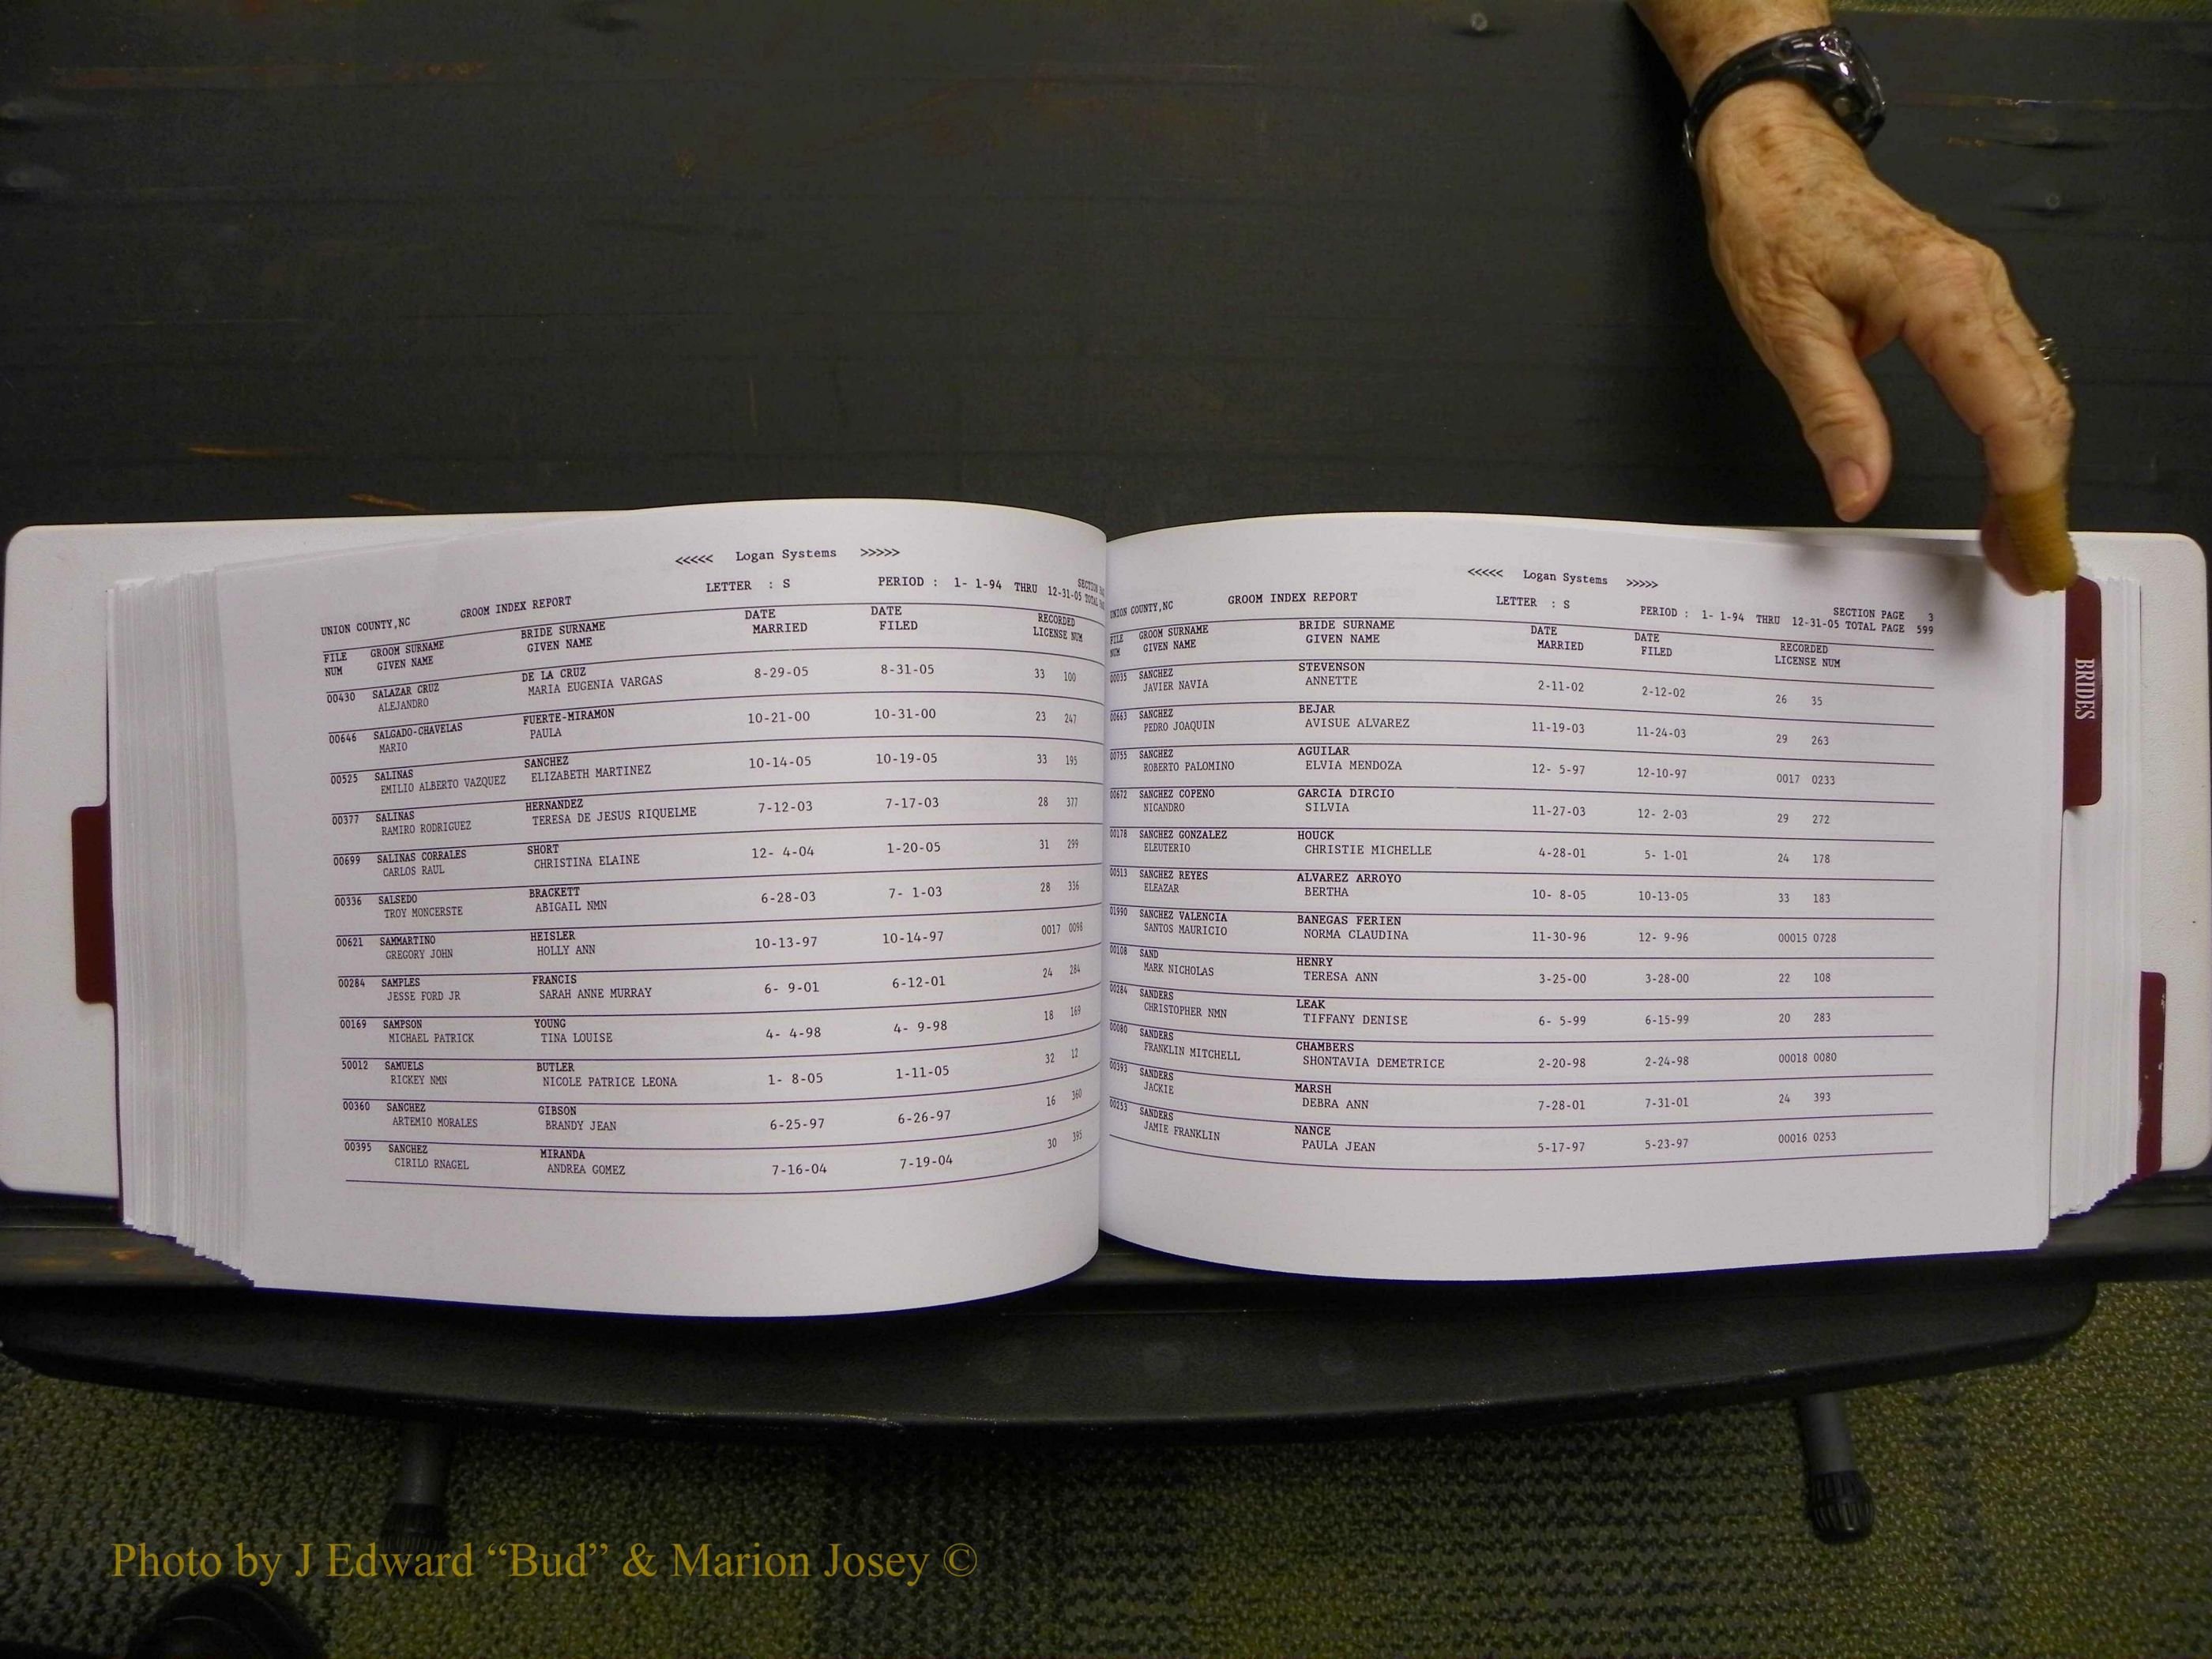 <<<<< Logan Systems >>>>>
UNION COUNTY,NC GROOM INDEX REPORT LETTER : S PERIOD : 1- 1-94 THRU 12-31-05
FILE GROOM SURNAME BRIDE SURNAME DATE DATE RECORDED
NUM GIVEN NAME GIVEN NAME MARRIED FILED LICENSE NUM
00430 SALAZAR CRUZ DE LA CRUZ 8-29-05 8-31-05 33 100
ALEJANDRO MARIA EUGENIA VARGAS
00646 SALGADO-CHAVELAS FUERTE-MIRAMON 10-21-00 10-31-00 23 247
MARIO PAULA
00525 SALINAS SANCHEZ 10-14-05 10-19-05 33 195
EMILIO ALBERTO VAZQUEZ ELIZABETH MARTINEZ
00377 SALINAS HERNANDEZ 7-12-03 7-17-03 28 377
RAMIRO RODRIGUEZ TERESA DE JESUS RIQUELME
00699 SALINAS CORRALES SHORT 12- 4-04 1-20-05 31 299
CARLOS RAUL CHRISTINA ELAINE
00336 SALSEDO BRACKETT 6-28-03 7- 1-03 28 336
TROY MONCERSTE ABIGAIL NMN
00621 SAMMARTINO HEISLER 10-13-97 10-14-97 0017 0098
GREGORY JOHN HOLLY ANN
00284 SAMPLES FRANCIS 6- 9-01 6-12-01 24 284
JESSE FORD JR SARAH ANNE MURRAY
00169 SAMPSON YOUNG 4- 4-98 4- 9-98 18 169
MICHAEL PATRICK TINA LOUISE
50012 SAMUELS BUTLER 1- 8-05 1-11-05 32 12
RICKEY NMN NICOLE PATRICE LEONA
00360 SANCHEZ GIBSON 6-25-97 6-26-97 16 360
ARTEMIO MORALES BRANDY JEAN
00395 SANCHEZ MIRANDA 7-16-04 7-19-04 30 395
CIRILO RNAGEL ANDREA GOMEZ
<<<<< Logan Systems >>>>>
SECTION PAGE 3
UNION COUNTY,NC GROOM INDEX REPORT LETTER : S PERIOD : 1- 1-94 THRU 12-31-05 TOTAL PAGE 599
FILE GROOM SURNAME BRIDE SURNAME DATE DATE RECORDED
NUM GIVEN NAME GIVEN NAME MARRIED FILED LICENSE NUM
00035 SANCHEZ STEVENSON 2-11-02 2-12-02 26 35
JAVIER NAVIA ANNETTE
00663 SANCHEZ BEJAR 11-19-03 11-24-03 29 263
PEDRO JOAQUIN AVISUE ALVAREZ
00755 SANCHEZ AGUILAR 12- 5-97 12-10-97 0017 0233
ROBERTO PALOMINO ELVIA MENDOZA
00672 SANCHEZ COPENO GARCIA DIRCIO 11-27-03 12- 2-03 29 272
NICANDRO SILVIA
00178 SANCHEZ GONZALEZ HOUCK 4-28-01 5- 1-01 24 178
ELEUTERIO CHRISTIE MICHELLE
00513 SANCHEZ REYES ALVAREZ ARROYO 10- 8-05 10-13-05 33 183
ELEAZAR BERTHA
01990 SANCHEZ VALENCIA BANEGAS FERIEN 11-30-96 12- 9-96 00015 0728
SANTOS MAURICIO NORMA CLAUDINA
00108 SAND HENRY 3-25-00 3-28-00 22 108
MARK NICHOLAS TERESA ANN
00284 SANDERS LEAK 6- 5-99 6-15-99 20 283
CHRISTOPHER NMN TIFFANY DENISE
00080 SANDERS CHAMBERS 2-20-98 2-24-98 00018 0080
FRANKLIN MITCHELL SHONTAVIA DEMETRICE
00393 SANDERS MARSH 7-28-01 7-31-01 24 393
JACKIE DEBRA ANN
00253 SANDERS NANCE 5-17-97 5-23-97 00016 0253
JAMIE FRANKLIN PAULA JEAN
BRIDES
Photo by J Edward “Bud” & Marion Josey ©